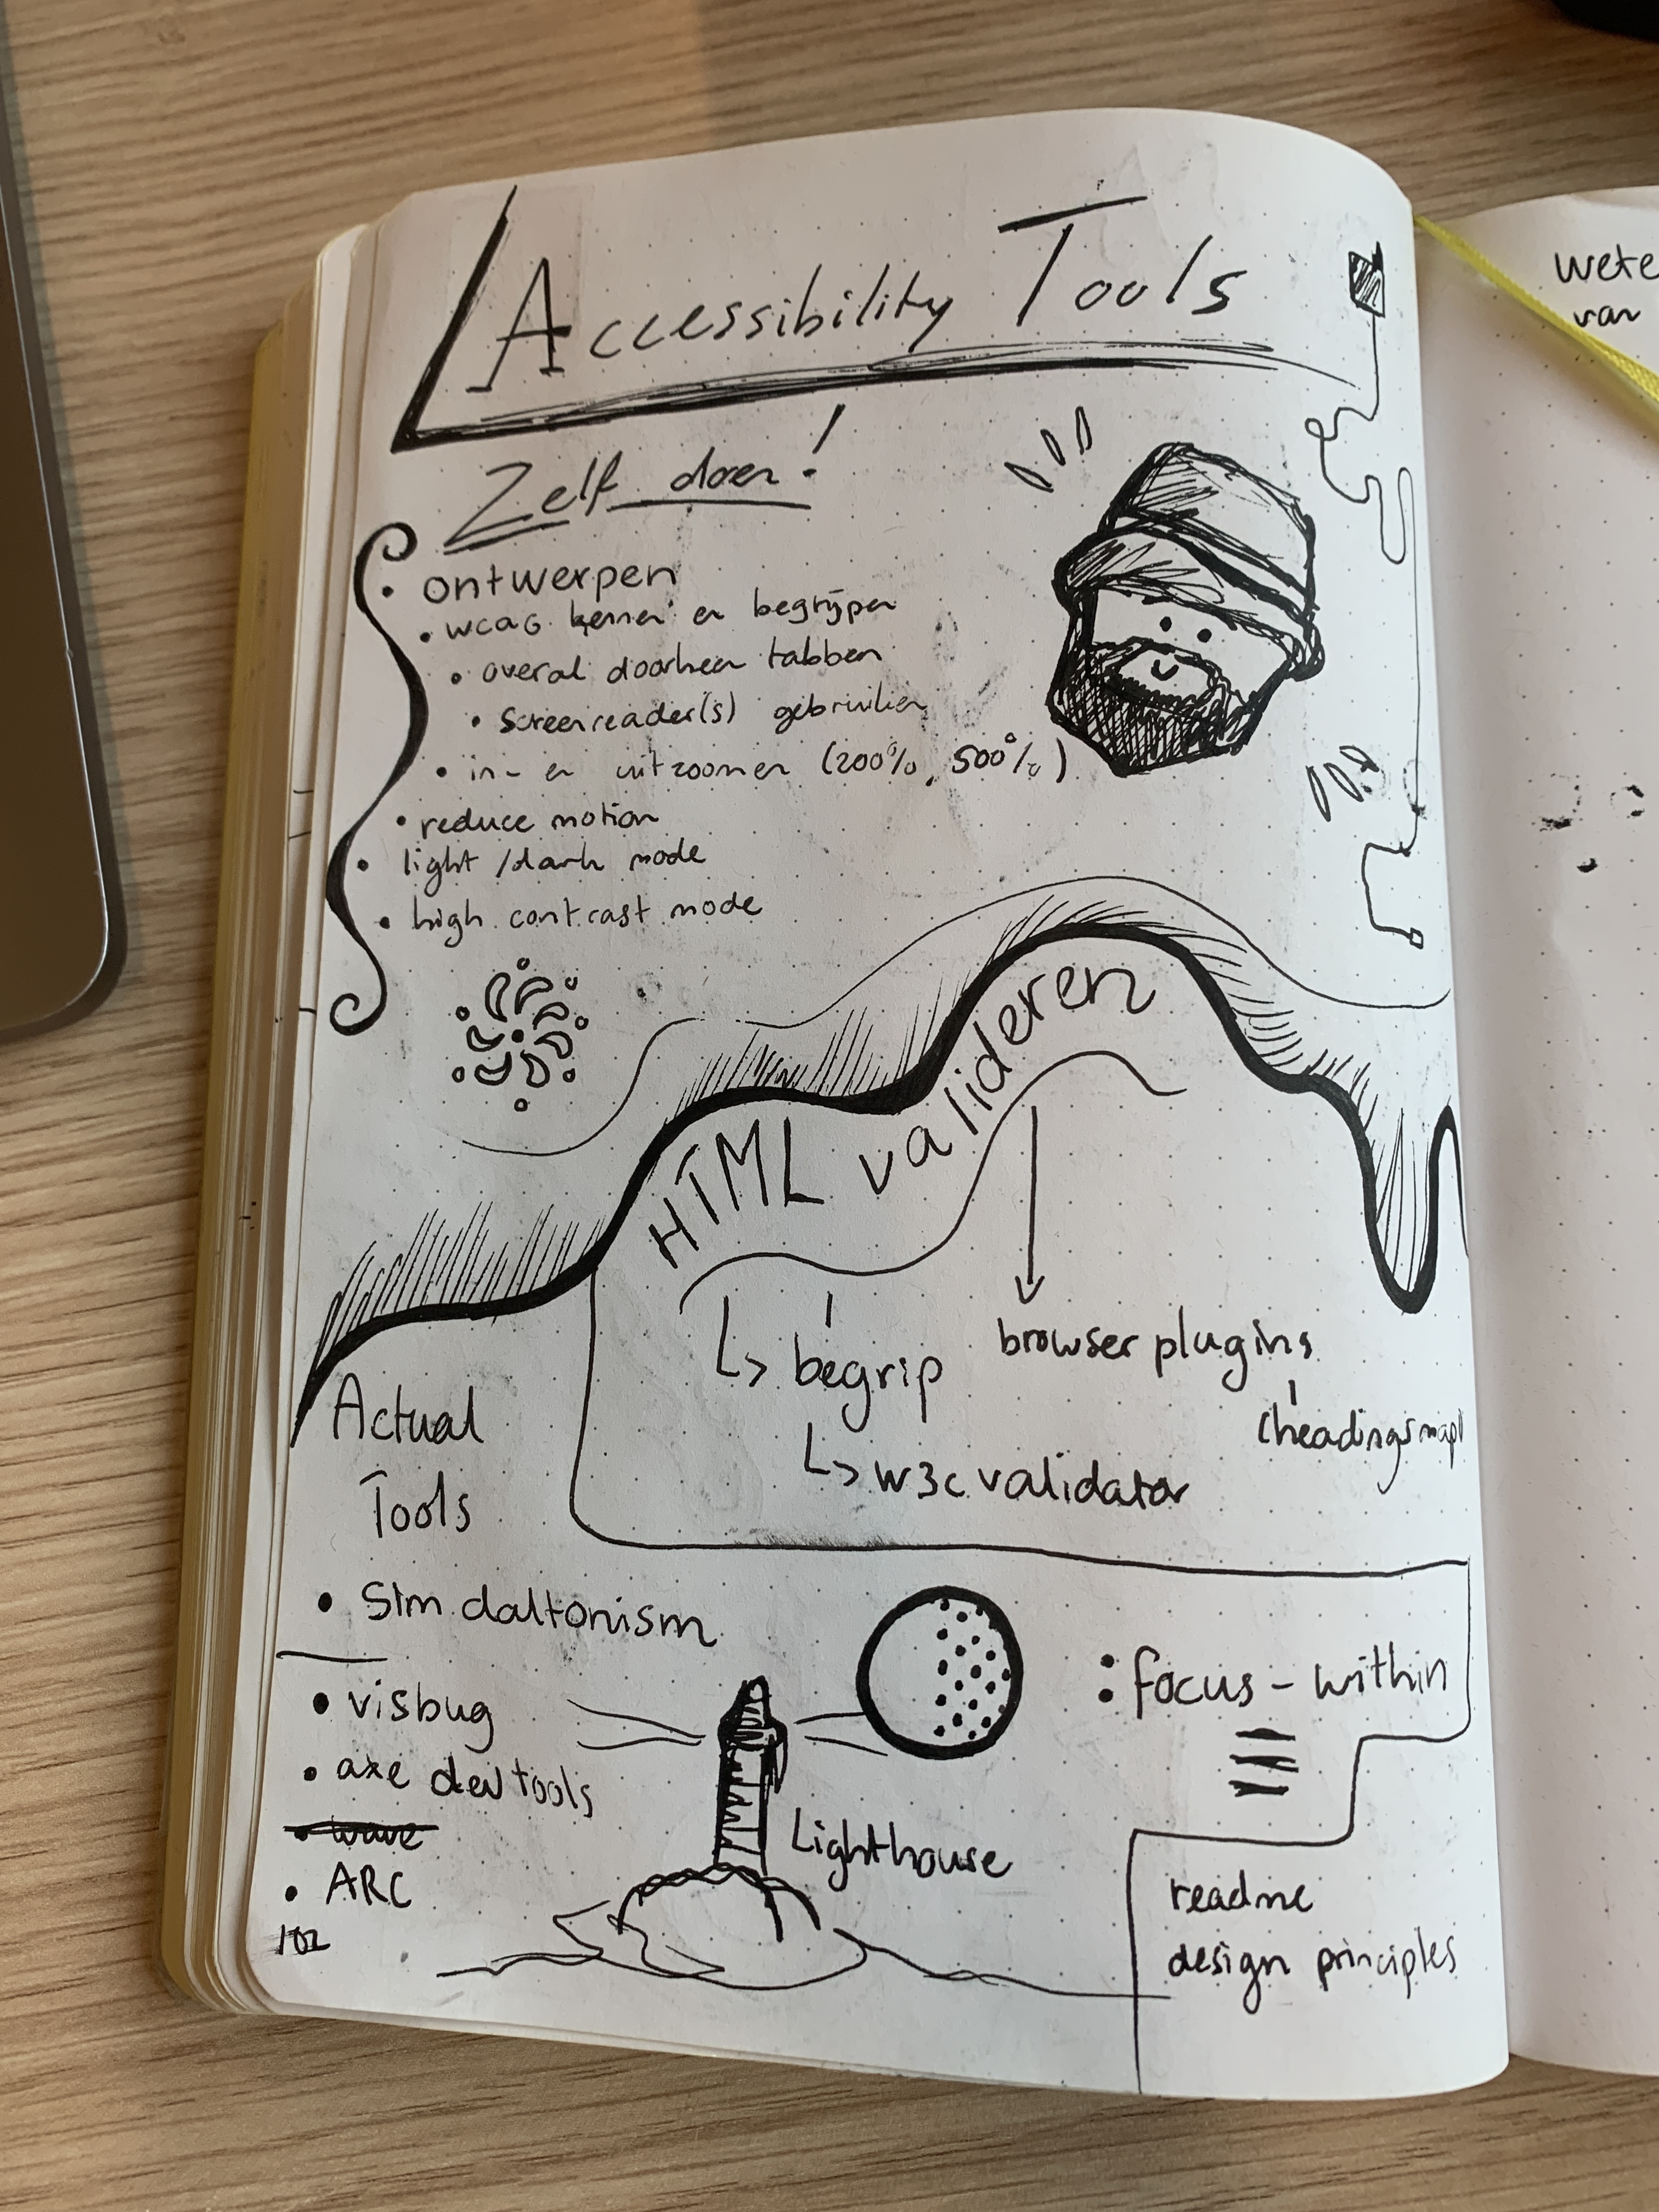 Accessibility Tools
Zelf doen!
• ontwerpen
• WCAG kennen en begrijpen
• overal doorheen tabben
• screenreader(s) gebruiken
• in- en uitzoomen (200%, 500%)
• reduce motion
• light/dark mode
• high contrast mode
HTML valideren
↳ begrip
↳ w3c validator
browser plugins
(headingsmap)
Actual
Tools
• Sim daltonism
• visbug
• axe devtools
• wave
• ARC
102
Lighthouse
:focus-within
readme
design principles
wete
van